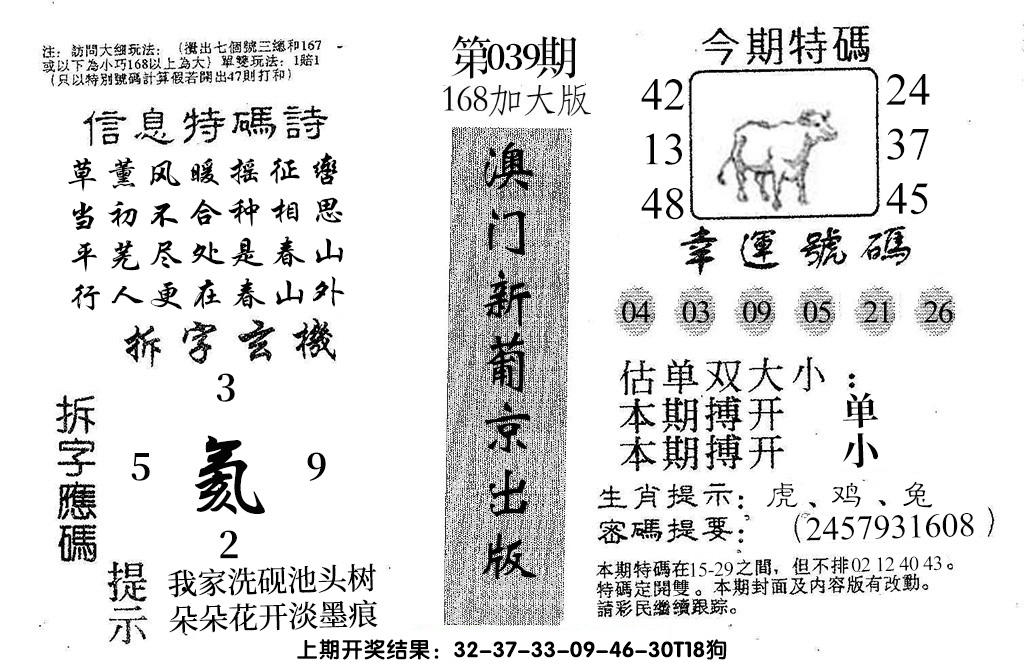 注：訪問大细玩法：（攪出七個號三總和167
或以下為小巧168以上為大）單雙玩法：1賠1
（只以特別號碼計算假若開出47則打和）
信息特碼詩
草薰风暖摇征辔
当初不合种相思
平芜尽处是春山
行人更在春山外
拆字玄機
3
5
氦
9
2
拆字應碼
提示
我家洗砚池头树
朵朵花开淡墨痕
第039期
168加大版
澳门新葡京出版
今期特碼
42
24
13
37
48
45
幸運號碼
04 03 09 05 21 26
估单双大小：
本期搏开 单
本期搏开 小
生肖提示：虎、鸡、兔
密碼提要：（2457931608）
本期特碼在15-29之間，但不排02 12 40 43。
特碼定開雙。本期封面及内容版有改動。
請彩民繼續跟踪。
上期开奖结果：32-37-33-09-46-30T18狗